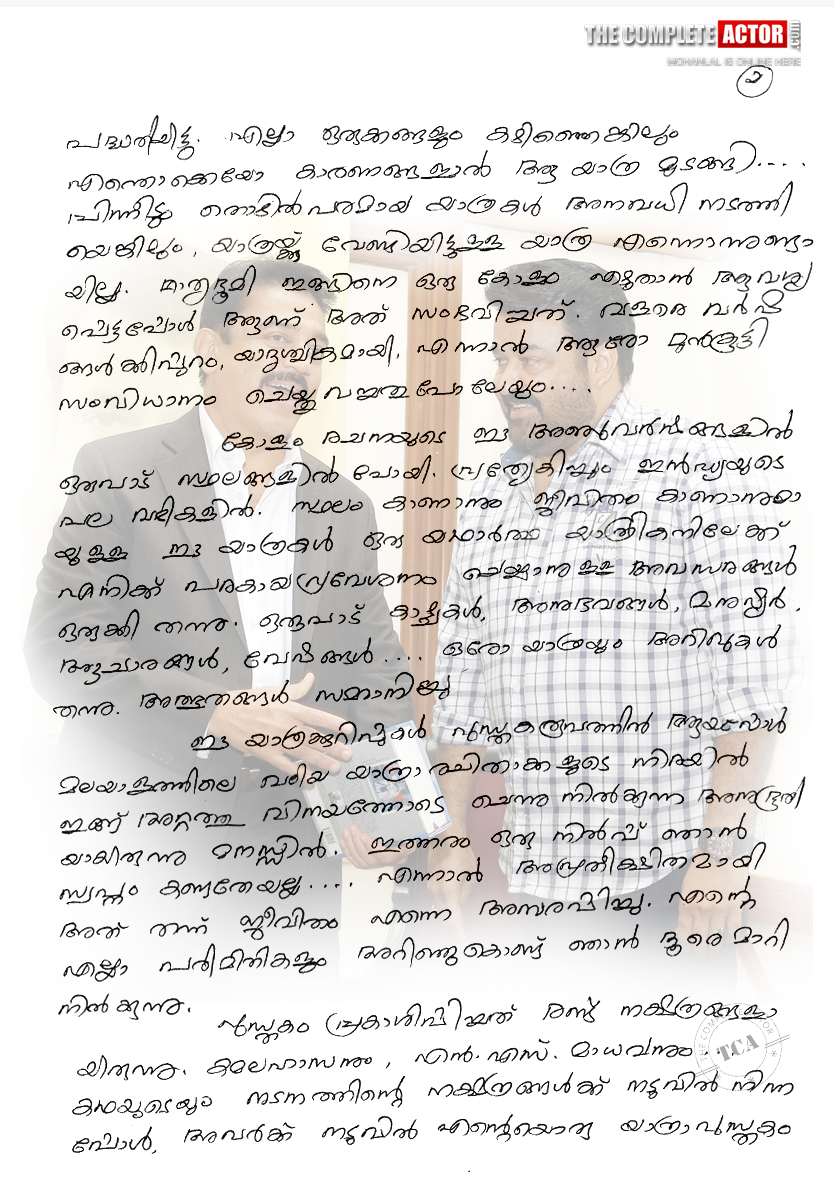 THE COMPLETE ACTOR .COM
MOHANLAL IS ONLINE HERE
2
പദ്ധതിയിട്ടു. എല്ലാ ഒരുക്കങ്ങളും കഴിഞ്ഞെങ്കിലും
എന്തൊക്കെയോ കാരണങ്ങളാൽ ആ യാത്ര മുടങ്ങി....
പിന്നീടും തൊഴിൽപരമായ യാത്രകൾ അനവധി നടത്തി
യെങ്കിലും, യാത്രയ്ക്കു വേണ്ടിയിട്ടുള്ള യാത്ര എന്നൊന്നുണ്ടാ
യില്ല. മാതൃഭൂമി ഇങ്ങിനെ ഒരു കോളം എഴുതാൻ ആവശ്യ
പ്പെട്ടപ്പോൾ ആണ് അത് സംഭവിച്ചത്. വളരെ വർഷ
ങ്ങൾക്കിപ്പുറം, യാദൃശ്ചികമായി, എന്നാൽ ആരോ മുൻകൂട്ടി
സംവിധാനം ചെയ്തുവച്ചതുപോലേയും....
കോളം രചനയുടെ ഈ അഞ്ചുവർഷങ്ങളിൽ
ഒരുപാട് സ്ഥലങ്ങളിൽ പോയി. പ്രത്യേകിച്ചും ഇൻഡ്യയുടെ
പല വഴികളിൽ. സ്ഥലം കാണാനും ജീവിതം കാണാനുമാ
യുള്ള ഈ യാത്രകൾ ഒരു യഥാർത്ഥ യാത്രികനിലേക്ക്
എനിക്ക് പരകായപ്രവേശനം ചെയ്യാനുള്ള അവസരങ്ങൾ
ഒരുക്കി തന്നു. ഒരുപാട് കാഴ്ചകൾ, അനുഭവങ്ങൾ, മനുഷ്യർ,
ആചാരങ്ങൾ, വേഷങ്ങൾ.... ഒരോ യാത്രയും അറിവുകൾ
തന്നു. അത്ഭുതങ്ങൾ സമ്മാനിച്ചു
ഈ യാത്രക്കുറിപ്പുകൾ പുസ്തകരൂപത്തിൽ ആയപ്പോൾ
മലയാളത്തിലെ വലിയ യാത്രാ രചിതാക്കളുടെ നിരയിൽ
ഇങ്ങ് അറ്റത്തു വിനയത്തോടെ ചെന്നു നിൽക്കുന്ന അനുഭൂതി
യായിരുന്നു മനസ്സിൽ. ഇത്തരം ഒരു നിൽപ്പ് ഞാൻ
സ്വപ്നം കണ്ടതേയല്ല.... എന്നാൽ അപ്രതീക്ഷിതമായി
അത് തന്ന് ജീവിതം എന്നെ അമ്പരപ്പിച്ചു. എന്റെ
എല്ലാ പരിമിതികളും അറിഞ്ഞുകൊണ്ട് ഞാൻ ദൂരെ മാറി
നിൽക്കുന്നു.
പുസ്തകം പ്രകാശിപ്പിച്ചത് രണ്ട് നക്ഷത്രങ്ങളാ
യിരുന്നു. കമലഹാസനും, എൻ.എസ്. മാധവനും.
കഥയുടെയും നടനത്തിന്റെ നക്ഷത്രങ്ങൾക്ക് നടുവിൽ നിന്ന
പ്പോൾ, അവർക്ക് നടുവിൽ എന്റെയൊരു യാത്രാപുസ്തകം
THE COMPLETE ACTOR
TCA